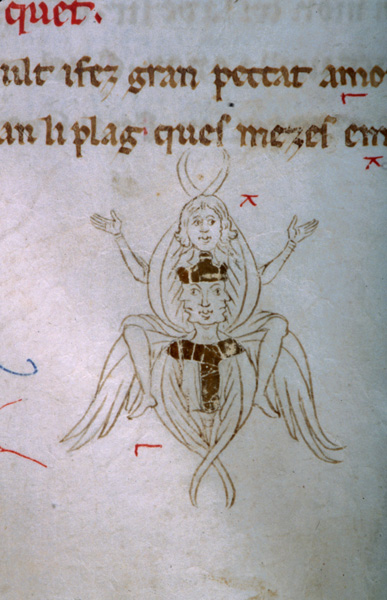 quet.
ult ifez gran peccat amo
an li plag ques mezes em